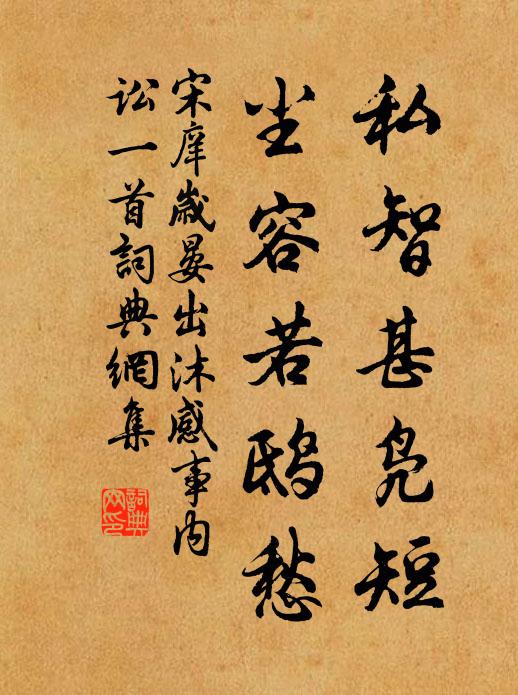 私智甚凫短
尘容若鸱愁
宋庠歲晏出沐感事内
讼一首詞典網集
詞典
网印